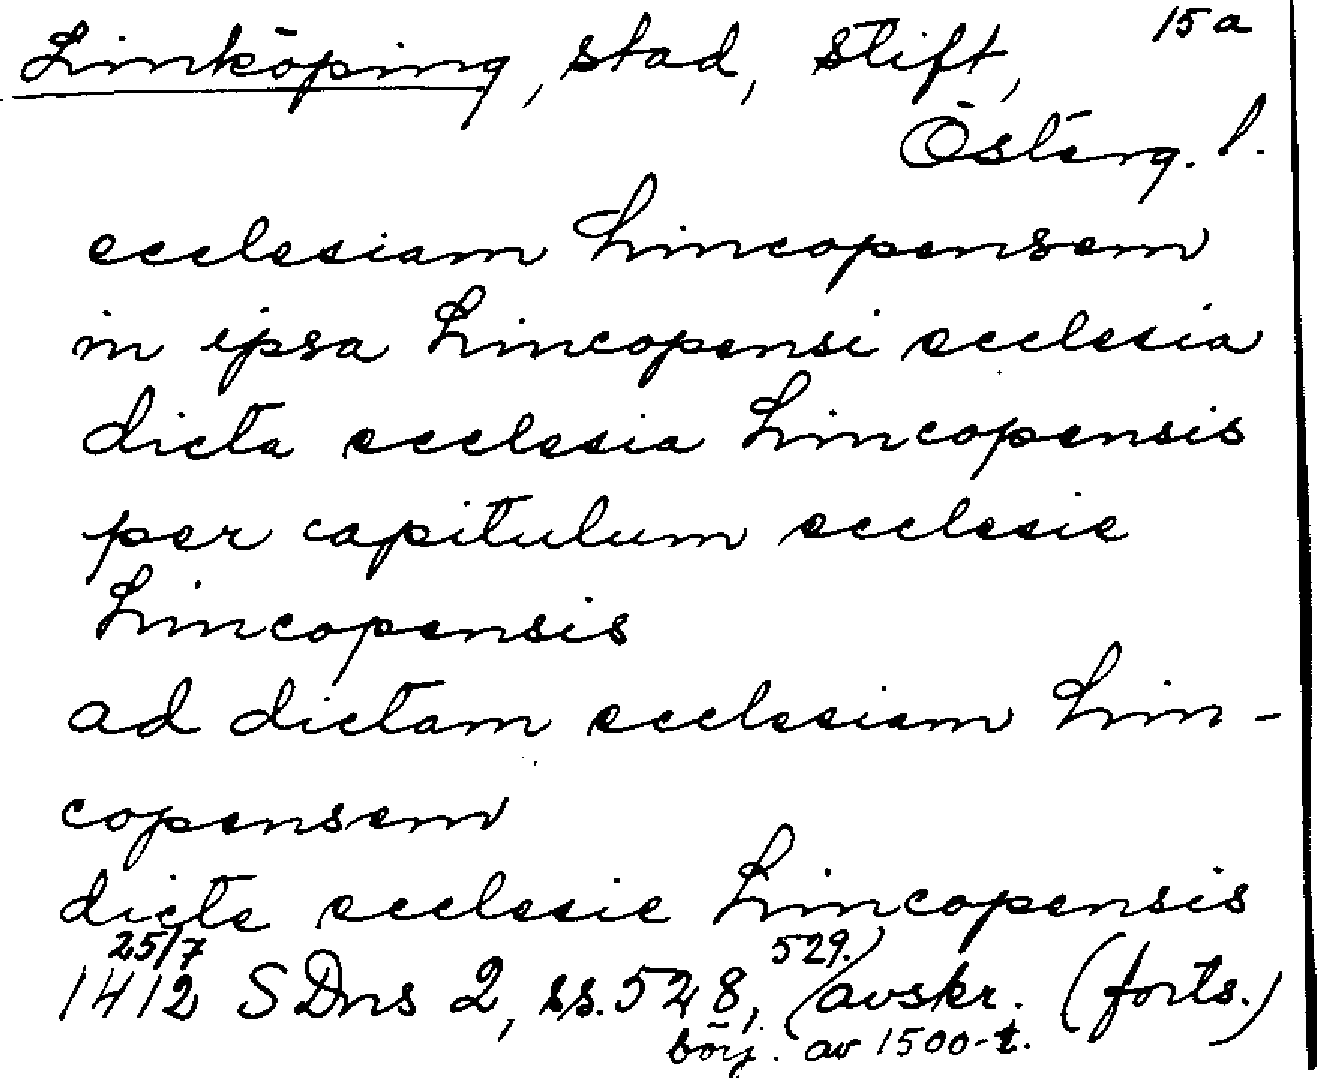 Linköping, stad, stift, 15a
Österg. l.
ecclesiam Lincopensem
in ipsa Lincopensi ecclesia
dicta ecclesia Lincopensis
per capitulum ecclesie
Lincopensis
ad dictam ecclesiam Lin-
copensem
dicte ecclesie Lincopensis
25/7 529.
1412 SDns 2, ss. 528, (avskr. (forts.)
börj. av 1500-t.